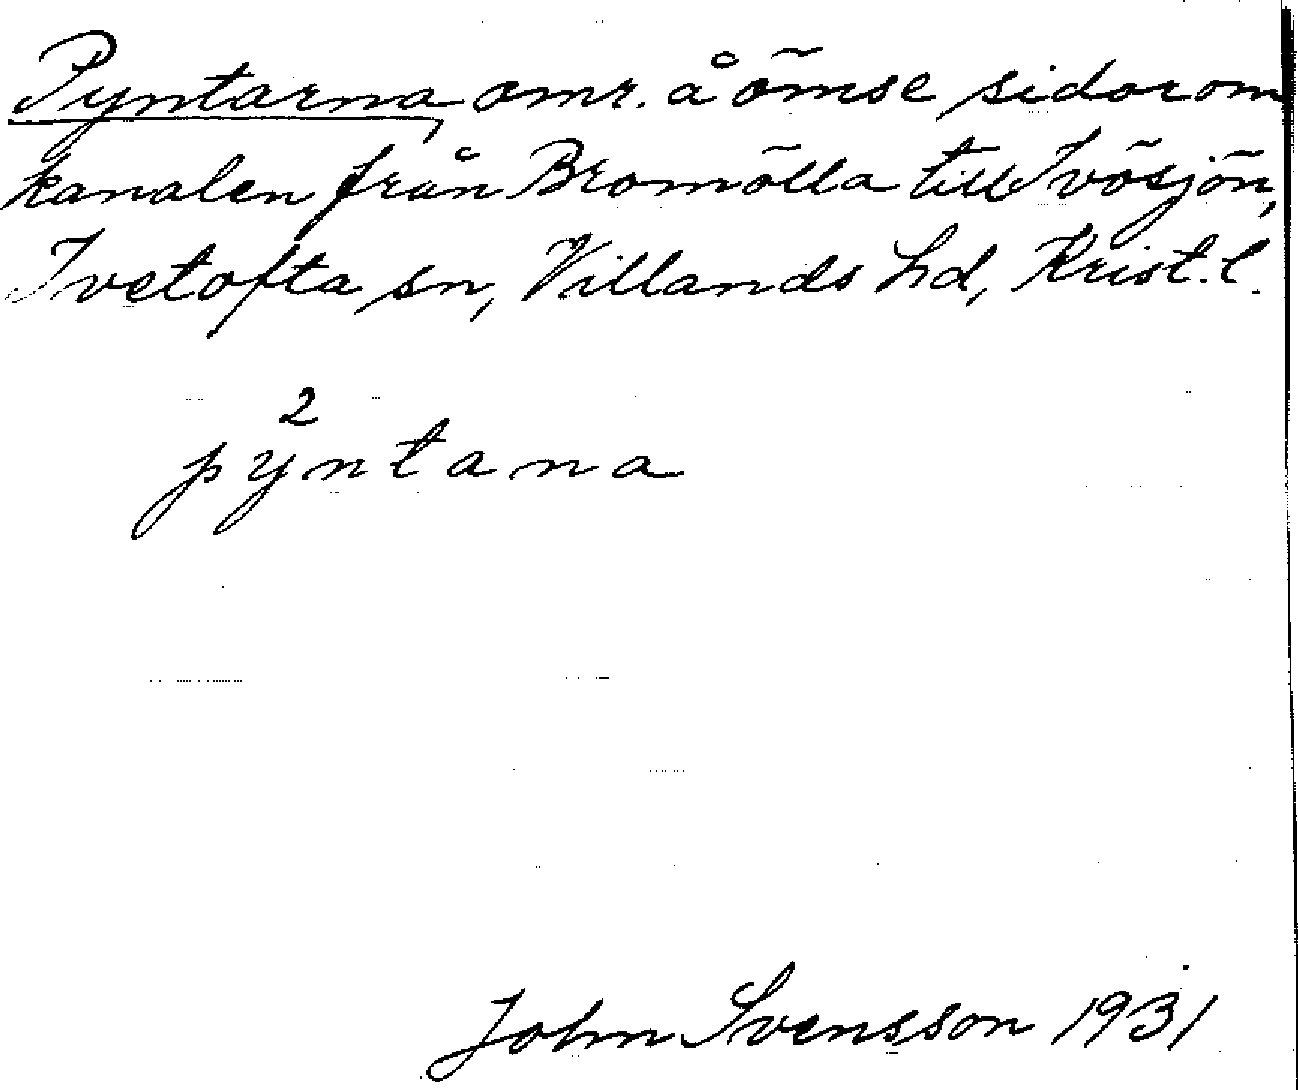 Pyntarna, omr. å ömse sidor om
kanalen från Bromölla till Ivösjön,
Ivetofta sn, Villands hd, Krist. l.
2
pyntana
John Svensson 1931